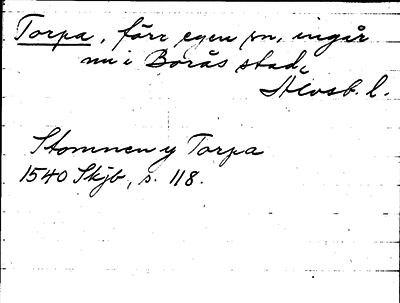 Torpa, förr egen sn, ingår
nu i Borås stad,
Älvsb. l.
Stommen y Torpa
1540 Skjb, s. 118.